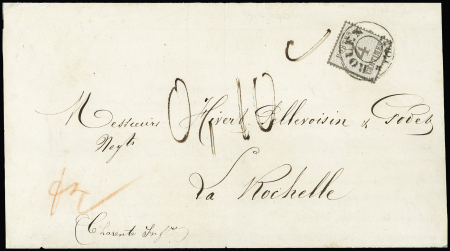 Messieurs Hivert Pellevoisin & Godet
Neg.ts
0,10
La Rochelle
(Charente Inf.re)